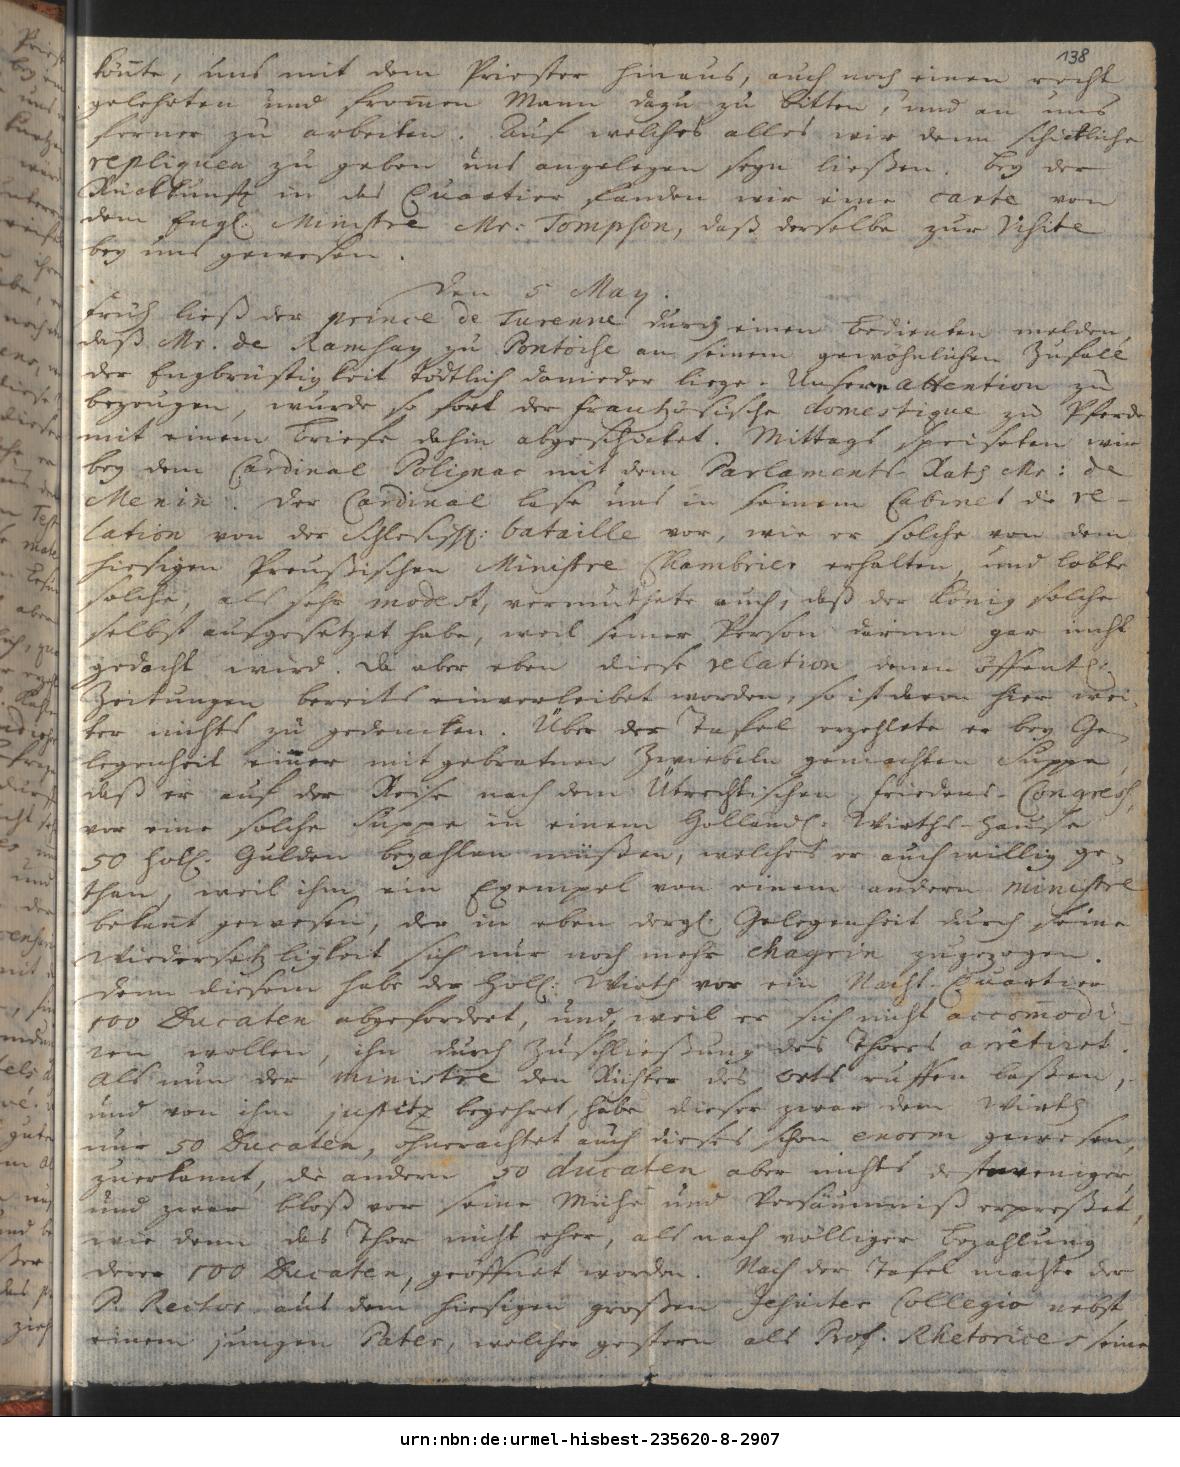 138
könte, uns mit dem Priester hinaus, auch noch einen recht
gelehrten und fromen Mann dazu zu bitten, und an uns
ferner zu arbeiten. Auf welches alles wir denn schickliche
repliquen zu geben uns angelegen seyn ließen. Bey der
Rückkunft in das Quartier fanden wir eine carte von
dem Engl. Ministre Mr: Tompson, daß derselbe zur Visite
bey uns gewesen.
den 5 May.
Früh ließ der prince de Turenne durch einen Bedienten melden,
daß Mr. de Ramsay zu Pontoise an seinem gewöhnlichen Zufall
der Engbrüstigkeit tödtlich danieder liege. Unsere attention zu
bezeugen, wurde so fort der frantzösische domestique zu Pferde
mit einem Briefe dahin abgeschicket. Mittags speiseten wir
bey dem Cardinal Polignac mit dem Parlaments-Rath Mr: de
Menin. Der Cardinal lase uns in seinem Cabinet die re-
lation von der Schlesisch: bataille vor, wie er solche von dem
hiesigen Preußischen Ministre Chambrier erhalten, und lobte
solche, als sehr modest, vermuthete auch, daß der König solche
selbst aufgesetzet habe, weil seiner Person darinn gar nicht
gedacht wird. Da aber eben diese relation denen öffentl:
Zeitungen bereits einverleibet worden, so ist davon hier wei-
ter nichts zu gedencken. Über der Tafel erzehlete er bey Ge-
legenheit einer mit gebratnen Zwiebeln gemachten Suppe,
daß er auf der Reise nach dem Ütrechtischen Friedens-Congress,
vor eine solche Suppe in einem Holländ: Wirths-Hause
50 holl. Gulden bezahlen müßen, welches er auch willig ge-
than, weil ihm ein Exempel von einem andern ministre
bekant gewesen, der in eben dergl. Gelegenheit durch seine
Wiedersetzligkeit sich nur noch mehr chagrin zugezogen.
Denn diesem habe der Holl: Wirth vor ein Nacht-Quartier
100 Ducaten abgefordert, und, weil er sich nicht accomodi-
ren wollen, ihn durch Zuschließung des Thores arrêtiret.
Als nun der ministre den Richter des Orts ruffen laßen,
und von ihm justitz begehret, habe dieser zwar dem Wirth
nur 50 Ducaten, ohnerachtet auch dieses schon enorm gewesen,
zuerkannt, die andern 50 ducaten aber nichts destoweniger,
und zwar bloß vor seine Mühe und Versäumniß erpreßet,
wie denn das Thor nicht eher, als nach völliger Bezahlung
derer 100 Ducaten, geöffnet worden. Nach der Tafel machte der
P. Rector aus dem hiesigen großen Jesuiter Collegio nebst
einem jungen Pater, welcher gestern als Prof. Rhetorices seine
urn:nbn:de:urmel-hisbest-235620-8-2907